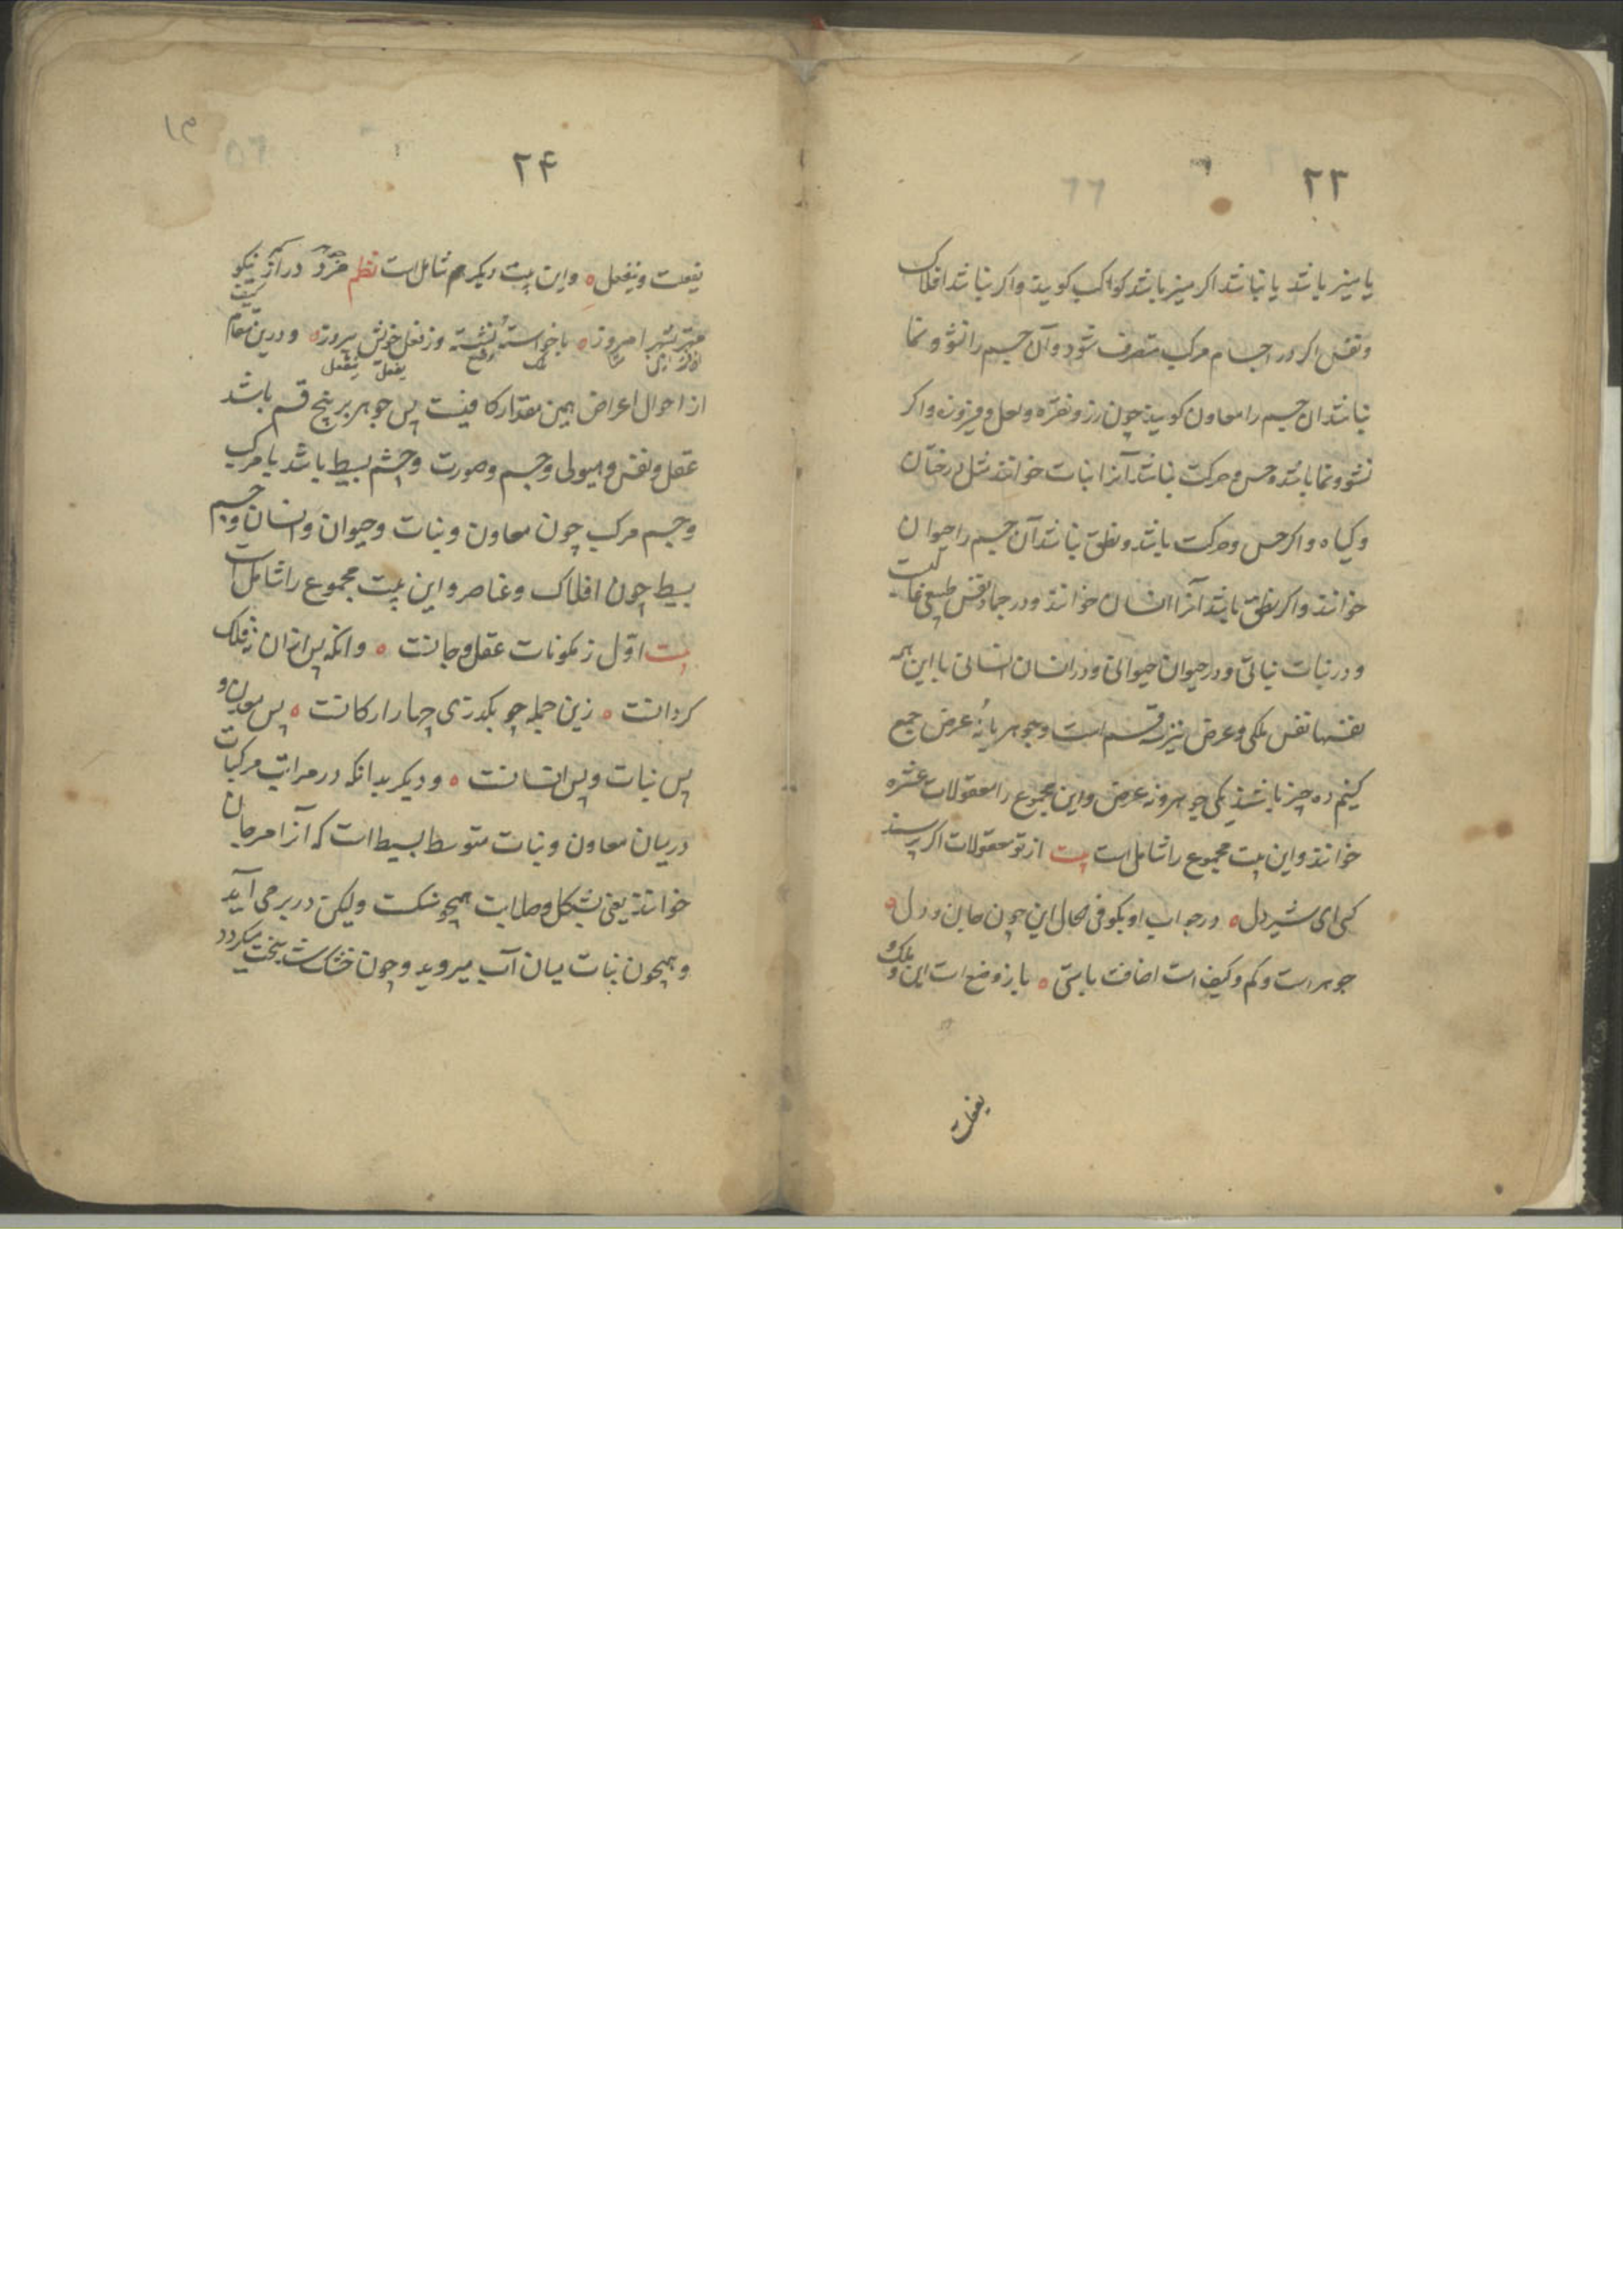 ۲۳
یا منیر باشد یا نباشد اگر منیر باشد کواکب کویند واکر نباشد افلاک
ونفس اکر در اجسام مرکب متصرف شود وآن جسم را نشو و نما
نباشد ان جسم را معادن کویند چون زر ونقره ولعل وفیروزه واکر
نشو ونما باشد وحس وحرکت نباشد آنرا نبات خوانند مثل درختان
وکیاه واکر حس وحرکت باشد ونطق نباشد آن جسم را حیوان
خوانند واکر نطق باشد آنرا انسان خوانند ودر جماد نفس طبیعی
ودر نبات نباتی ودر حیوان حیوانی ودر انسان انسانی با این همه
نفسها نفس ملکی وعرض نیز نه قسم است وجوهر با نه عرض جمع
کنیم ده چیز باشد یکی جوهر ونه عرض واین مجموع را معقولات عشره
خوانند واین بیت مجموع را شاملست بیت از تو معقولات اکر پرسند
کی ای شیر دل ه در جواب او بکو فی الحال این چون جان ودل ه
جوهر است وکم وکیف است اضافت با متی ه باز وضع است این وملک و
یفعلت
۲۴
یفعلت وینفعل ه واین بیت دیکر هم شاملست نظم مرد دراز نیکو
جوهر کم کیف
مهتر بشهر امروز ه با خواسته نشسته وز فعل خویش پیروز ه ودرین مقام
ملک وضع یفعل ینفعل
از احوال اعراض همین مقدار کافیست پس جوهر بر پنج قسم باشد
عقل ونفس وهیولی وجسم وصورت وجسم بسیط باشد یا مرکب
وجسم مرکب چون معادن ونبات وحیوان وانسان وجسم
بسیط چون افلاک وعناصر واین بیت مجموع را شاملست
بیت اوّل ز مکونات عقل وجانست ه وانکه پس ازان نه فلک
کردانست ه زین جمله چو بکذری چهار ارکانست ه پس معدن و
پس نبات وپس انسانست ه ودیکر بدانکه در مراتب مرکبات
درمیان معادن ونبات متوسط بسیط است که آنرا مرجان
خوانند یعنی بشکل وصلابت همچو سنکست ولیکن در بر می آید
وهمچون نبات میان آب میروید وچون خشک شد سخت میکردد